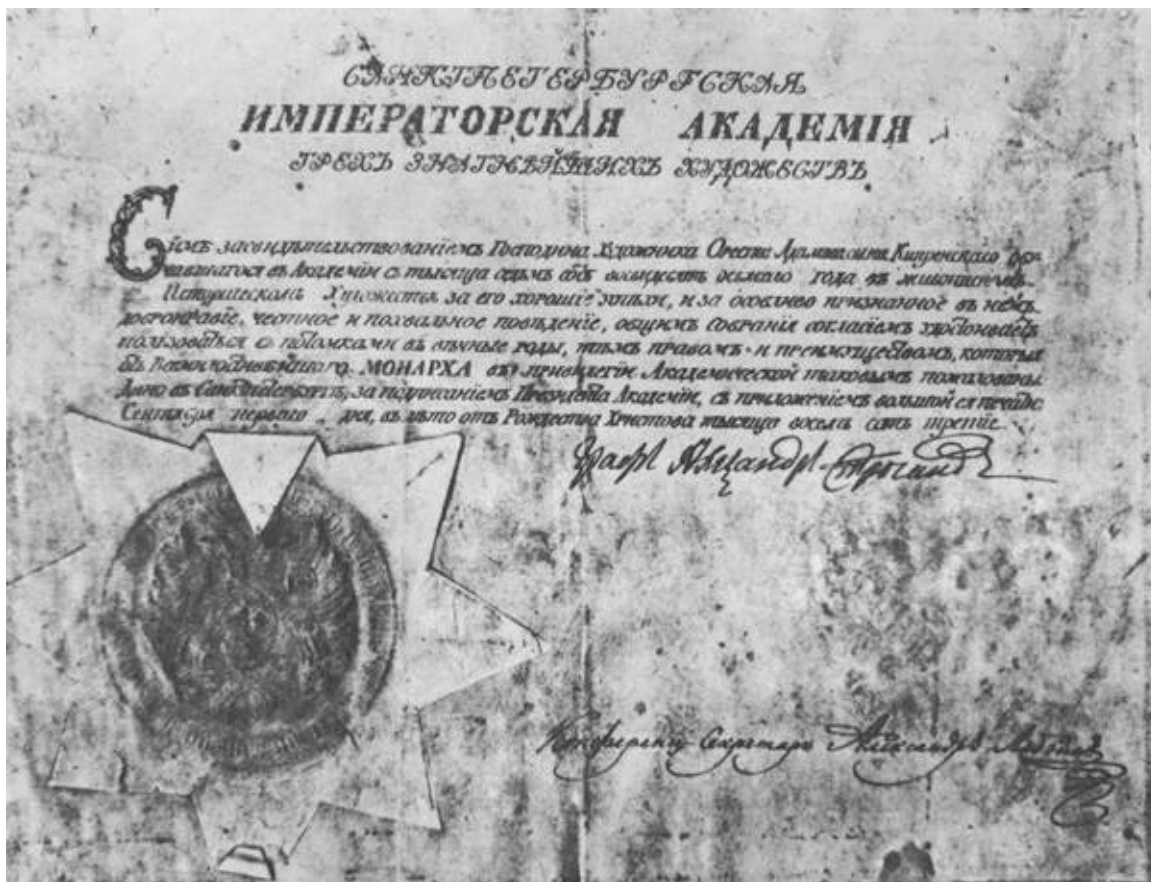 САНКТПЕТЕРБУРГСКАЯ
ИМПЕРАТОРСКАЯ АКАДЕМІЯ
ТРЕХЪ ЗНАТНѢЙШИХЪ ХУДОЖЕСТВЪ
Симъ засвидѣтельствованіемъ Господина Художника Ореста Адамовича Кипренскаго
въ Академіи съ тысяща седьмъ сотъ восмдесятъ осьмаго года въ живописномъ
Историческомъ Художествѣ за его хорошіе успѣхи, и за особливо признанное въ немъ
добронравіе, честное и похвальное поведеніе, общимъ собранія согласіемъ удостоиваетъ
пользоваться съ потомками въ вѣчные роды, тѣмъ правомъ и преимуществомъ, которыя
отъ Всемилостивѣйшаго МОНАРХА въ привилегіи Академической таковымъ пожалованы
Дано въ Санктпетербургѣ, за подписаніемъ Президента Академіи, съ приложеніемъ большой ея печати
Сентября перваго дня, въ лѣто отъ Рождества Христова тысяща восемь сотъ третіе
Графъ Александръ Строгановъ
Конференцъ-Секретарь Александръ